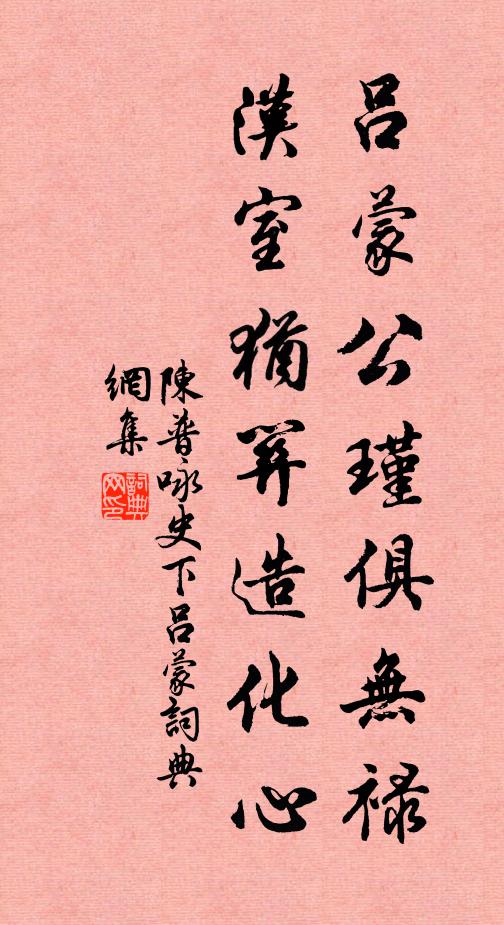 呂蒙公瑾俱無祿
漢室猶關造化心
陳普咏史下呂蒙詞典
網集
詞典
网印